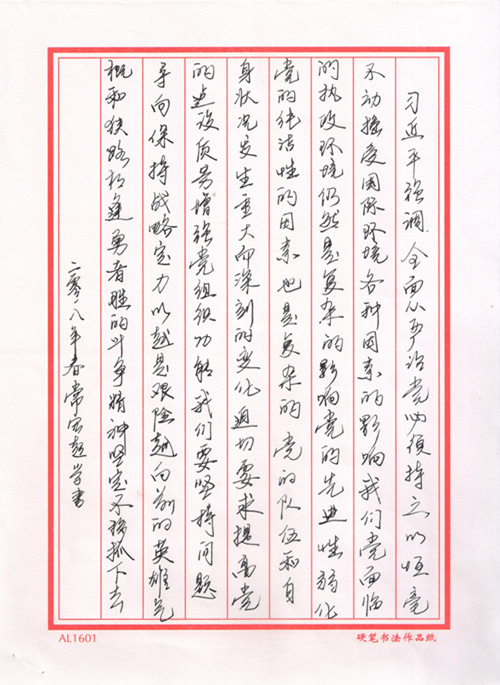 习近平强调.全面从严治党必须持之以恒毫
不动摇受国际环境各种因素的影响我们党面临
的执政环境仍然是复杂的影响党的先进性弱化
党的纯洁性的因素也是复杂的党的队伍和自
身状况发生重大而深刻的变化迫切要求提高党
的建设质量增强党组织功能我们要坚持问题
导向保持战略定力以越是艰险越向前的英雄气
概和狭路相逢勇者胜的斗争精神坚定不移抓下去
二零一八年春常宏超学书
AL1601
硬笔书法作品纸